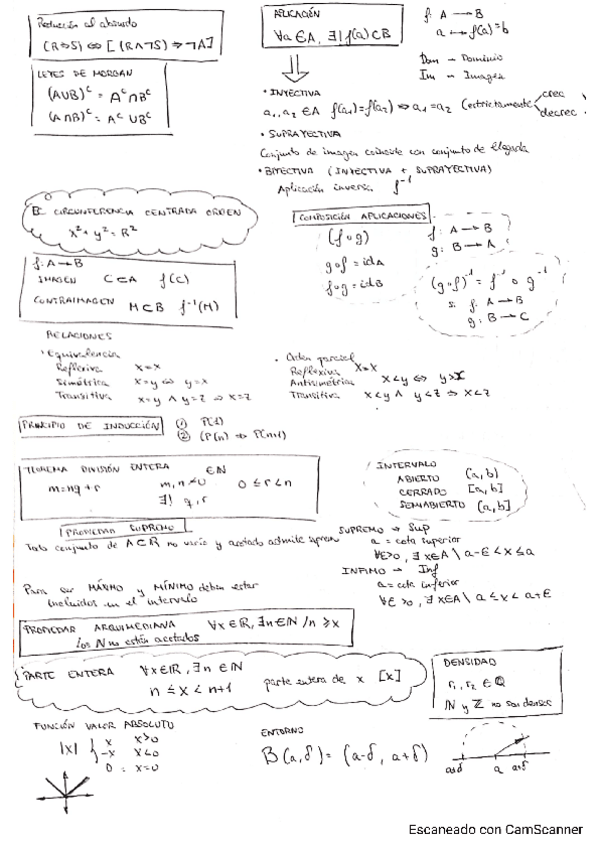 Reducción al absurdo
(R⇒S) ⇔ [(R∧¬S) ⇒ ¬R]
LEYES DE MORGAN
(A∪B)ᶜ = Aᶜ∩Bᶜ
(A∩B)ᶜ = Aᶜ∪Bᶜ
APLICACIÓN
∀a∈A, ∃! f(a)⊂B
f: A → B
a ↦ f(a)=b
Dom → Dominio
Im → Imagen
• INYECTIVA
a₁, a₂ ∈A f(a₁)=f(a₂) ⇒ a₁=a₂ (estrictamente crec
decrec
• SUPRAYECTIVA
Conjunto de imagen coincide con conjunto de llegada
• BIYECTIVA (INYECTIVA + SUPRAYECTIVA)
Aplicación inversa f⁻¹
EC CIRCUNFERENCIA CENTRADA ORIGEN
x²+y²=R²
COMPOSICIÓN APLICACIONES
(f∘g)
g∘f = idA
f∘g = idB
f: A → B
g: B → A
(g∘f)⁻¹ = f⁻¹∘g⁻¹
si f: A → B
g: B → C
f: A→B
IMAGEN C⊂A f(C)
CONTRAIMAGEN M⊂B f⁻¹(M)
RELACIONES
• Equivalencia
Reflexiva x=x
Simétrica x=y ⇔ y=x
Transitiva x=y ∧ y=z ⇒ x=z
• Orden parcial
Reflexiva x=x
Antisimétrica x<y ⇔ y>x
Transitiva x<y ∧ y<z ⇒ x<z
PRINCIPIO DE INDUCCIÓN ① P(1)
② (P(n) ⇒ P(n+1)
TEOREMA DIVISIÓN ENTERA ∈ℕ
m=nq+r m,n≠0 0≤r<n
∃! q,r
INTERVALO
ABIERTO (a,b)
CERRADO [a,b]
SEMIABIERTO (a,b]
PROPIEDAD SUPREMO
Todo conjunto de A⊂ℝ no vacío y acotado admite supremo
SUPREMO → Sup
a = cota superior
∀ε>0, ∃ x∈A \ a-ε<x≤a
INFIMO → Inf
a = cota inferior
∀ε>0, ∃ x∈A \ a≤x<a+ε
Para ser MÁXIMO y MÍNIMO deben estar
incluidos en el intervalo
PROPIEDAD ARQUIMEDIANA ∀x∈ℝ, ∃n∈ℕ / n≥x
los ℕ no están acotados
PARTE ENTERA ∀x∈ℝ, ∃n∈ℕ
n≤x<n+1 parte entera de x [x]
DENSIDAD
r₁, r₂ ∈ ℚ
ℕ y ℤ no son densos
FUNCIÓN VALOR ABSOLUTO
|x| { x x>0
-x x<0
0 : x=0
ENTORNO
B(a,δ) = (a-δ, a+δ)
a-δ a a+δ
Escaneado con CamScanner